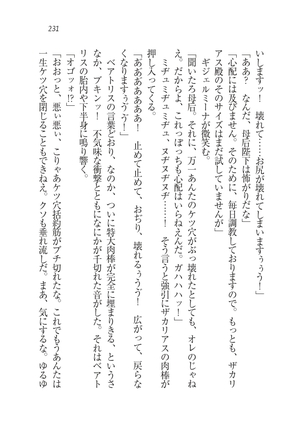 231
いしますッ！　壊れて……お尻が壊れてしまいますぅぅう！」
「ああ？　なんだ、母后陛下はケツ穴がゆるくなるのが心配なのか？」
「心配には及びません。そのために、毎日調教しておりますので。もっとも、ザカリ
アス殿のそのサイズはまだ試していませんが」
ギジェルミーナが微笑む。
「聞いたろ母后。それに、万一あんたのケツ穴が壊れてしまっても、オレのじゃね
え。だからよ、これっぽっちも心配はいらねえんだ。ガハハハッ！」
ミヂュミヂュミヂュ、ヌヂヌヂヌヂ……。そう言うと強引にザカリアスの肉棒が
押し入ってくる。
「あああああああ！　止めて止めて、おぢり、壊れるぅうう！　広がって、戻らな
くなりますぅうぅう！」
ベアトリスの言葉どおり、なのか、ついに特大肉棒が完全に埋まりきる、というさ
なか、ブキンッ！　不気味な衝撃とともになにかが千切れた音がした。それはベアト
リスの胎内や下半身に鳴り響く。
「オゴフォ!?」
「おおっと、悪ぃ悪ぃ、こりゃあケツ穴括約筋がブチ切れたな。これでもうあんたは
一生ケツ穴を閉じることもできねえ。クソも垂れ流しだ。まあ、気にするな。ゆるゆ